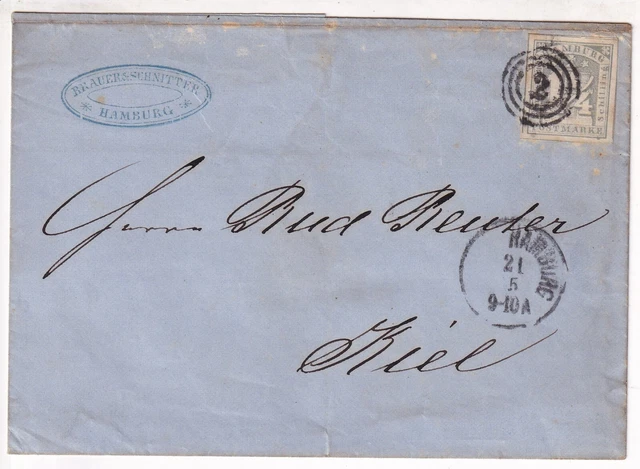 BRAUER & SCHNITTER.
HAMBURG
HAMBURG
2
1¼
Schilling
POSTMARKE
Herrn Rud Reuter
HAMBURG
21
5
9-10A
Kiel